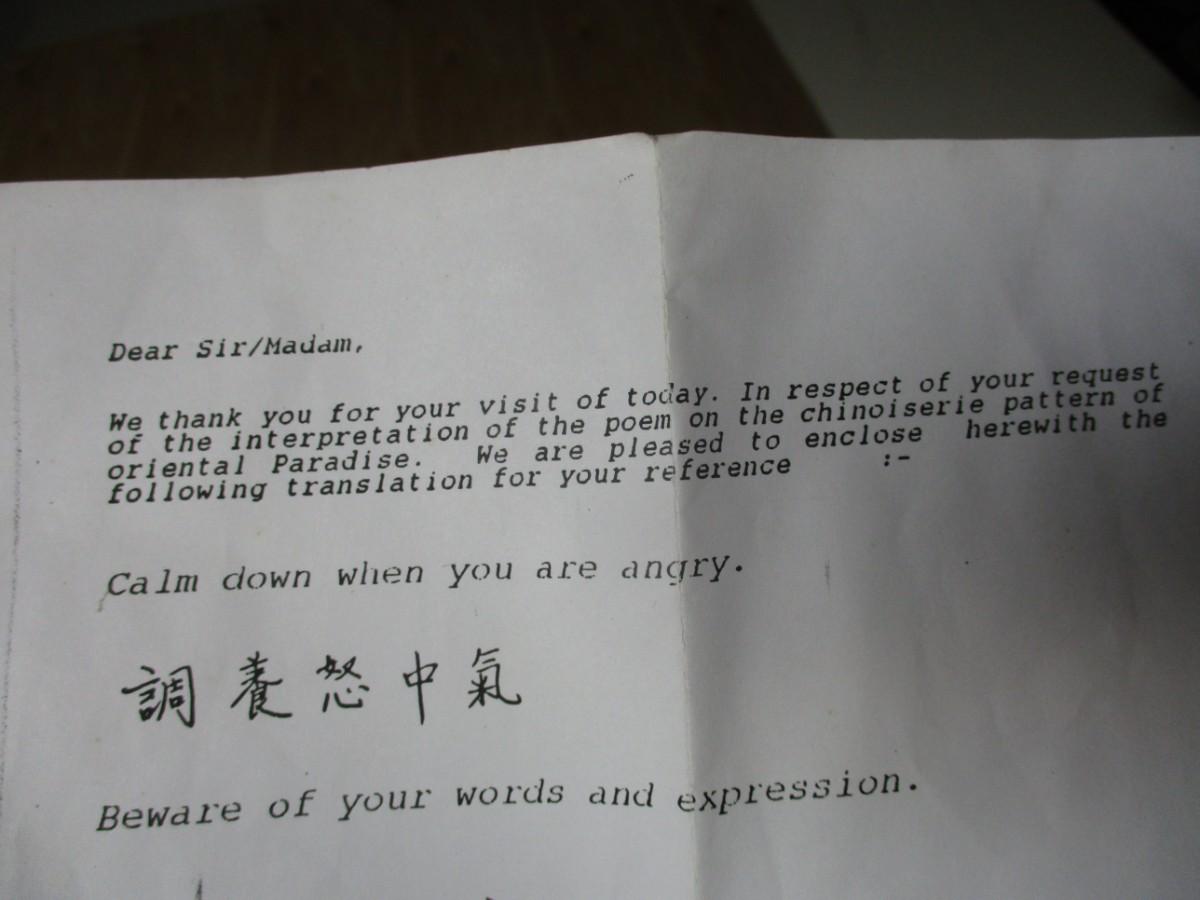 Dear Sir/Madam,
We thank you for your visit of today. In respect of your request
of the interpretation of the poem on the chinoiserie pattern of
oriental Paradise. We are pleased to enclose herewith the
following translation for your reference :-
Calm down when you are angry.
調養怒中氣
Beware of your words and expression.